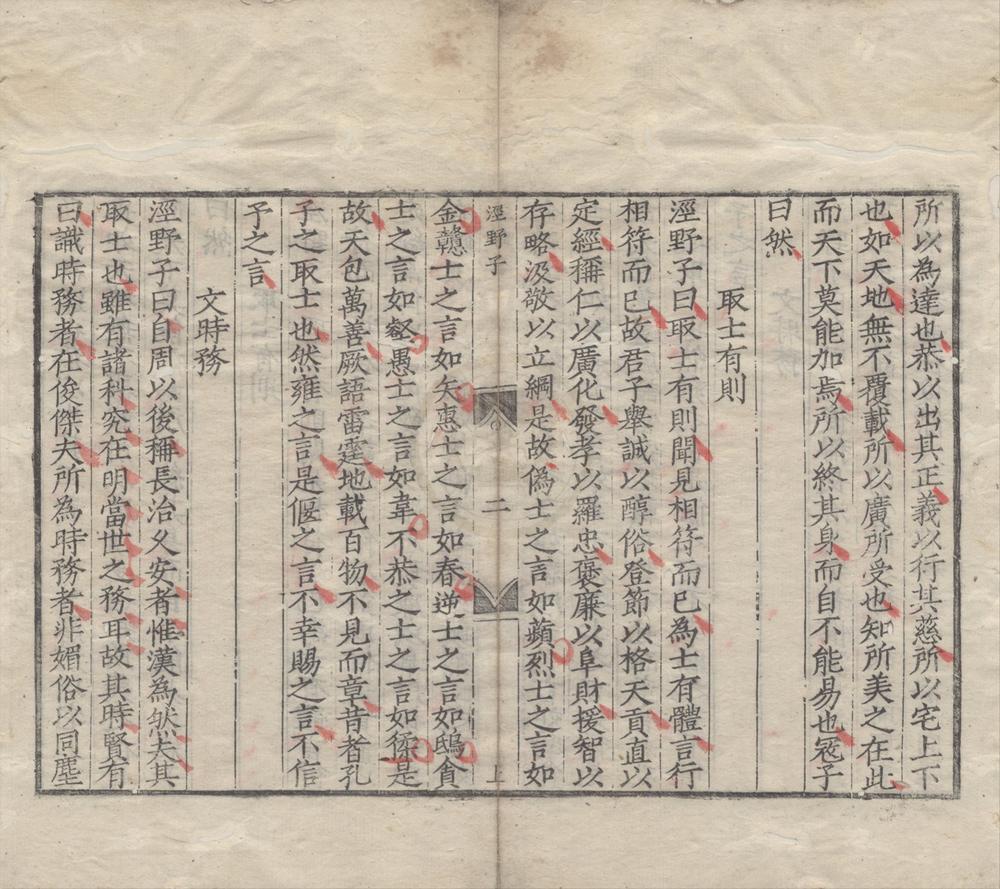 所以為達也恭以出其正義以行其慈所以宅上下
也如天地無不覆載所以廣所受也知所美之在此
而天下莫能加焉所以終其身而自不能易也冦子
曰然
取士有則
涇野子曰取士有則聞見相符而已為士有體言行
相符而已故君子舉誠以醇俗登節以格天貢直以
定經稱仁以廣化發孝以羅忠褒廉以阜財援智以
存略汲敬以立綱是故偽士之言如蘋烈士之言如
涇野子
二
上
金戇士之言如矢惠士之言如春逆士之言如鴟貪
士之言如壑愚士之言如葦不恭之士之言如猱是
故天包萬善厥語雷霆地載百物不見而章昔者孔
子之取士也然雍之言是偃之言不幸賜之言不信
予之言
文時務
涇野子曰自周以後稱長治久安者惟漢為然夫其
取士也雖有諸科究在明當世之務耳故其時賢有
曰識時務者在俊傑夫所為時務者非媚俗以同塵